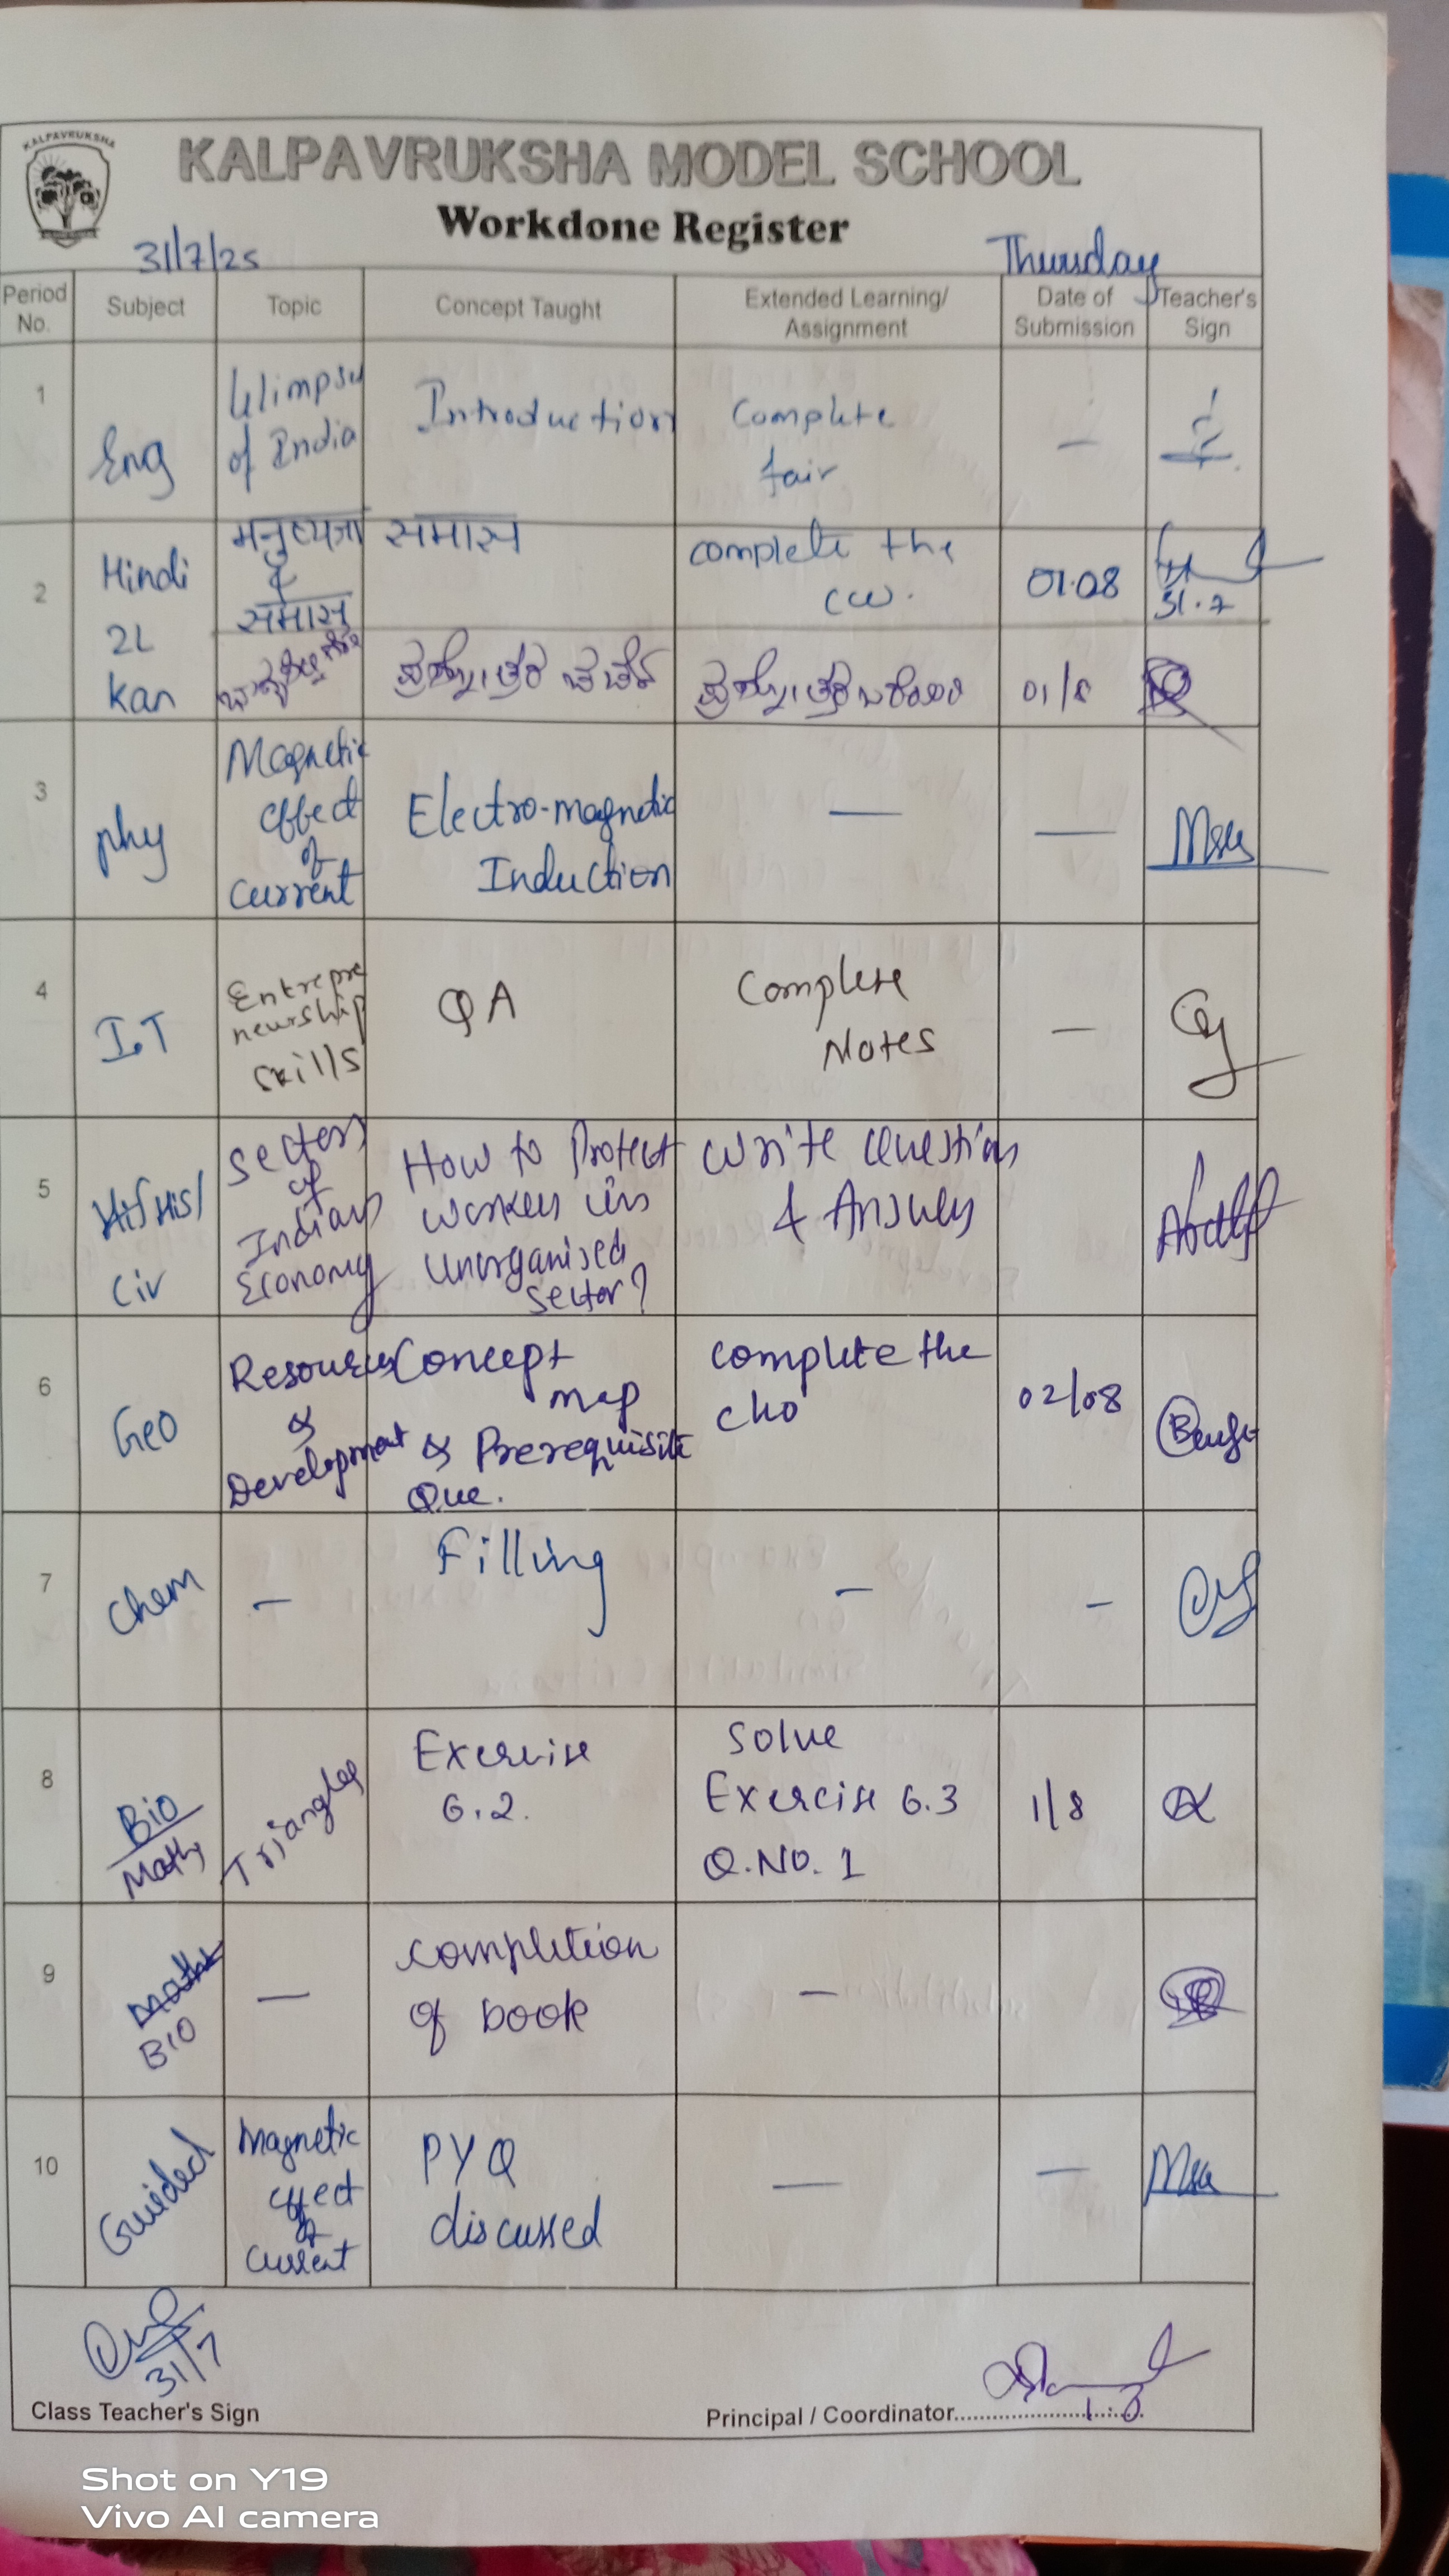 KALPAVRUKSHA
KALPAVRUKSHA MODEL SCHOOL
Workdone Register
31/7/25 Thursday
Period No. Subject Topic Concept Taught Extended Learning/ Assignment Date of Submission Teacher's Sign
1 Eng Glimpses of India Introduction Complete fair —
2 Hindi मनुष्यता & समास समास complete the cw. 01.08 31.7
2L Kan 01/8
3 phy Magnetic effect of Current Electro-magnetic Induction — —
4 I.T Entrepre neurship skills QA Complete Notes —
5 His/ Civ Sectors of Indian Economy How to Protect workers in unorganised sector? Write Question & Answers
6 Geo Resources & Development Concept map & Prerequisite Que. complete the 02/08
7 Chem — Filling — —
8 Bio Maths Triangles Exercise 6.2. Solve Exercise 6.3 Q.NO. 1 1/8
9 Maths BIO — completion of book —
10 Guided Magnetic effect of Current PYQ discussed — —
31/7
1.8
Class Teacher's Sign
Principal / Coordinator
Shot on Y19
Vivo AI camera